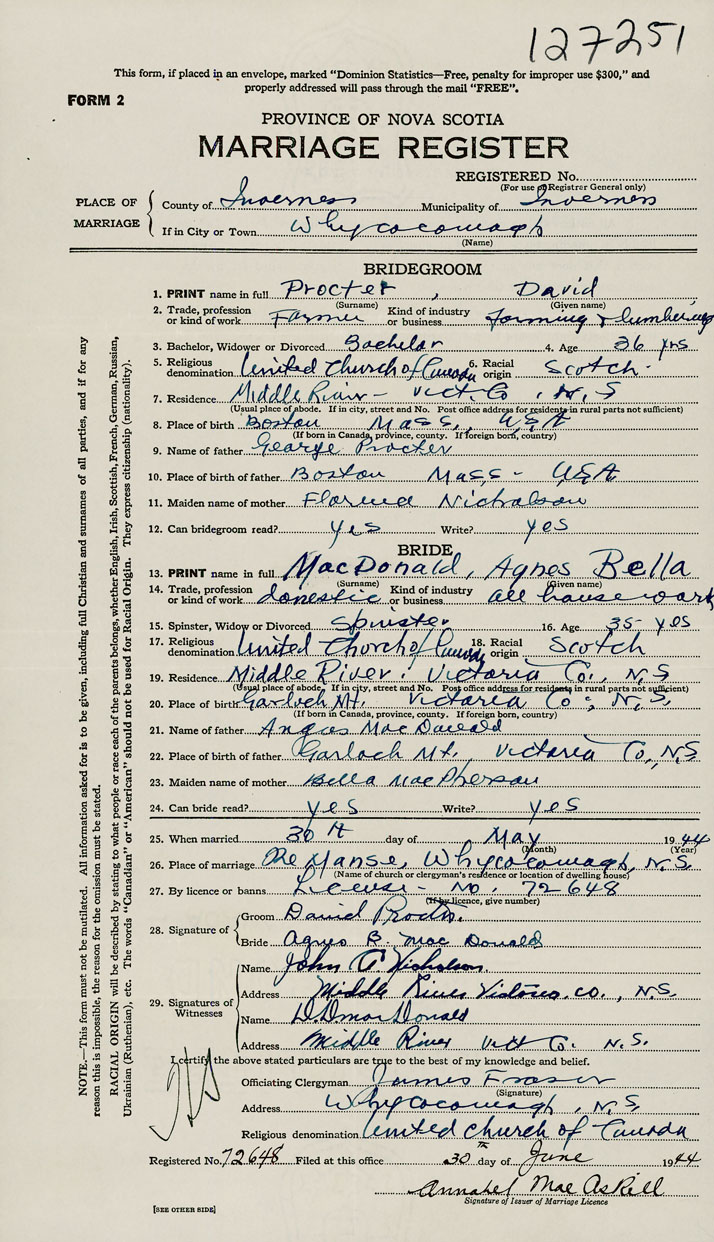 127251
This form, if placed in an envelope, marked "Dominion Statistics—Free, penalty for improper use $300," and
properly addressed will pass through the mail "FREE".
FORM 2
PROVINCE OF NOVA SCOTIA
MARRIAGE REGISTER
REGISTERED No.
(For use of Registrar General only)
PLACE OF MARRIAGE
County of Inverness Municipality of Inverness
If in City or Town Whycocomagh
(Name)
BRIDEGROOM
1. PRINT name in full Procter, David
(Surname) (Given name)
2. Trade, profession or kind of work Farmer Kind of industry or business farming & lumbering
3. Bachelor, Widower or Divorced Bachelor 4. Age 36 yrs
5. Religious denomination United Church of Canada 6. Racial origin Scotch
7. Residence Middle River - Vict. Co. N.S
(Usual place of abode. If in city, street and No. Post office address for residents in rural parts not sufficient)
8. Place of birth Boston Mass., USA
(If born in Canada, province, county. If foreign born, country)
9. Name of father George Procter
10. Place of birth of father Boston Mass - USA
11. Maiden name of mother Florence Nicholson
12. Can bridegroom read? yes Write? yes
BRIDE
13. PRINT name in full MacDonald, Agnes Bella
(Surname) (Given name)
14. Trade, profession or kind of work domestic Kind of industry or business all housework
15. Spinster, Widow or Divorced Spinster 16. Age 35 yes
17. Religious denomination United Church of Canada 18. Racial origin Scotch
19. Residence Middle River. Victoria Co., N.S
(Usual place of abode. If in city, street and No. Post office address for residents in rural parts not sufficient)
20. Place of birth Garloch Mt. Victoria Co., N.S.
(If born in Canada, province, county. If foreign born, country)
21. Name of father Angus MacDonald
22. Place of birth of father Garloch Mt., Victoria Co., N.S
23. Maiden name of mother Bella MacPherson
24. Can bride read? yes Write? yes
25. When married 30th day of May 1944
(Month) (Year)
26. Place of marriage The Manse, Whycocomagh, N.S.
(Name of church or clergyman's residence or location of dwelling house)
27. By licence or banns License - No. 72648
(If by licence, give number)
28. Signature of
Groom David Procter.
Bride Agnes B. MacDonald
29. Signatures of Witnesses
Name John Nicholson
Address Middle River Victoria Co., N.S.
Name MacDonald
Address Middle River Vict Co. N.S.
I certify the above stated particulars are true to the best of my knowledge and belief.
Officiating Clergyman James Fraser
(Signature)
Address Whycocomagh, N.S.
Religious denomination United Church of Canada
Registered No. 72648 Filed at this office 30th day of June 1944
Annabel MacAskill
Signature of Issuer of Marriage Licence
[SEE OTHER SIDE]
NOTE.—This form must not be mutilated. All information asked for is to be given, including full Christian and surnames of all parties, and if for any
reason this is impossible, the reason for the omission must be stated.
RACIAL ORIGIN will be described by stating to what people or race each of the parents belongs, whether English, Irish, Scottish, French, German, Russian,
Ukrainian (Ruthenian), etc. The words "Canadian" or "American" should not be used for Racial Origin. They express citizenship (nationality).